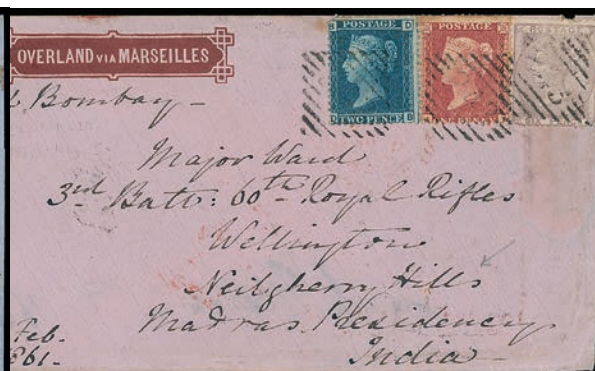 OVERLAND VIA MARSEILLES
POSTAGE
TWO PENCE
POSTAGE
ONE PENNY
POSTAGE
Bombay -
Major Ward
3rd Batt: 60th Royal Rifles
Wellington
Neilgherry Hills
Madras Presidency
India -
Feb.
861 -